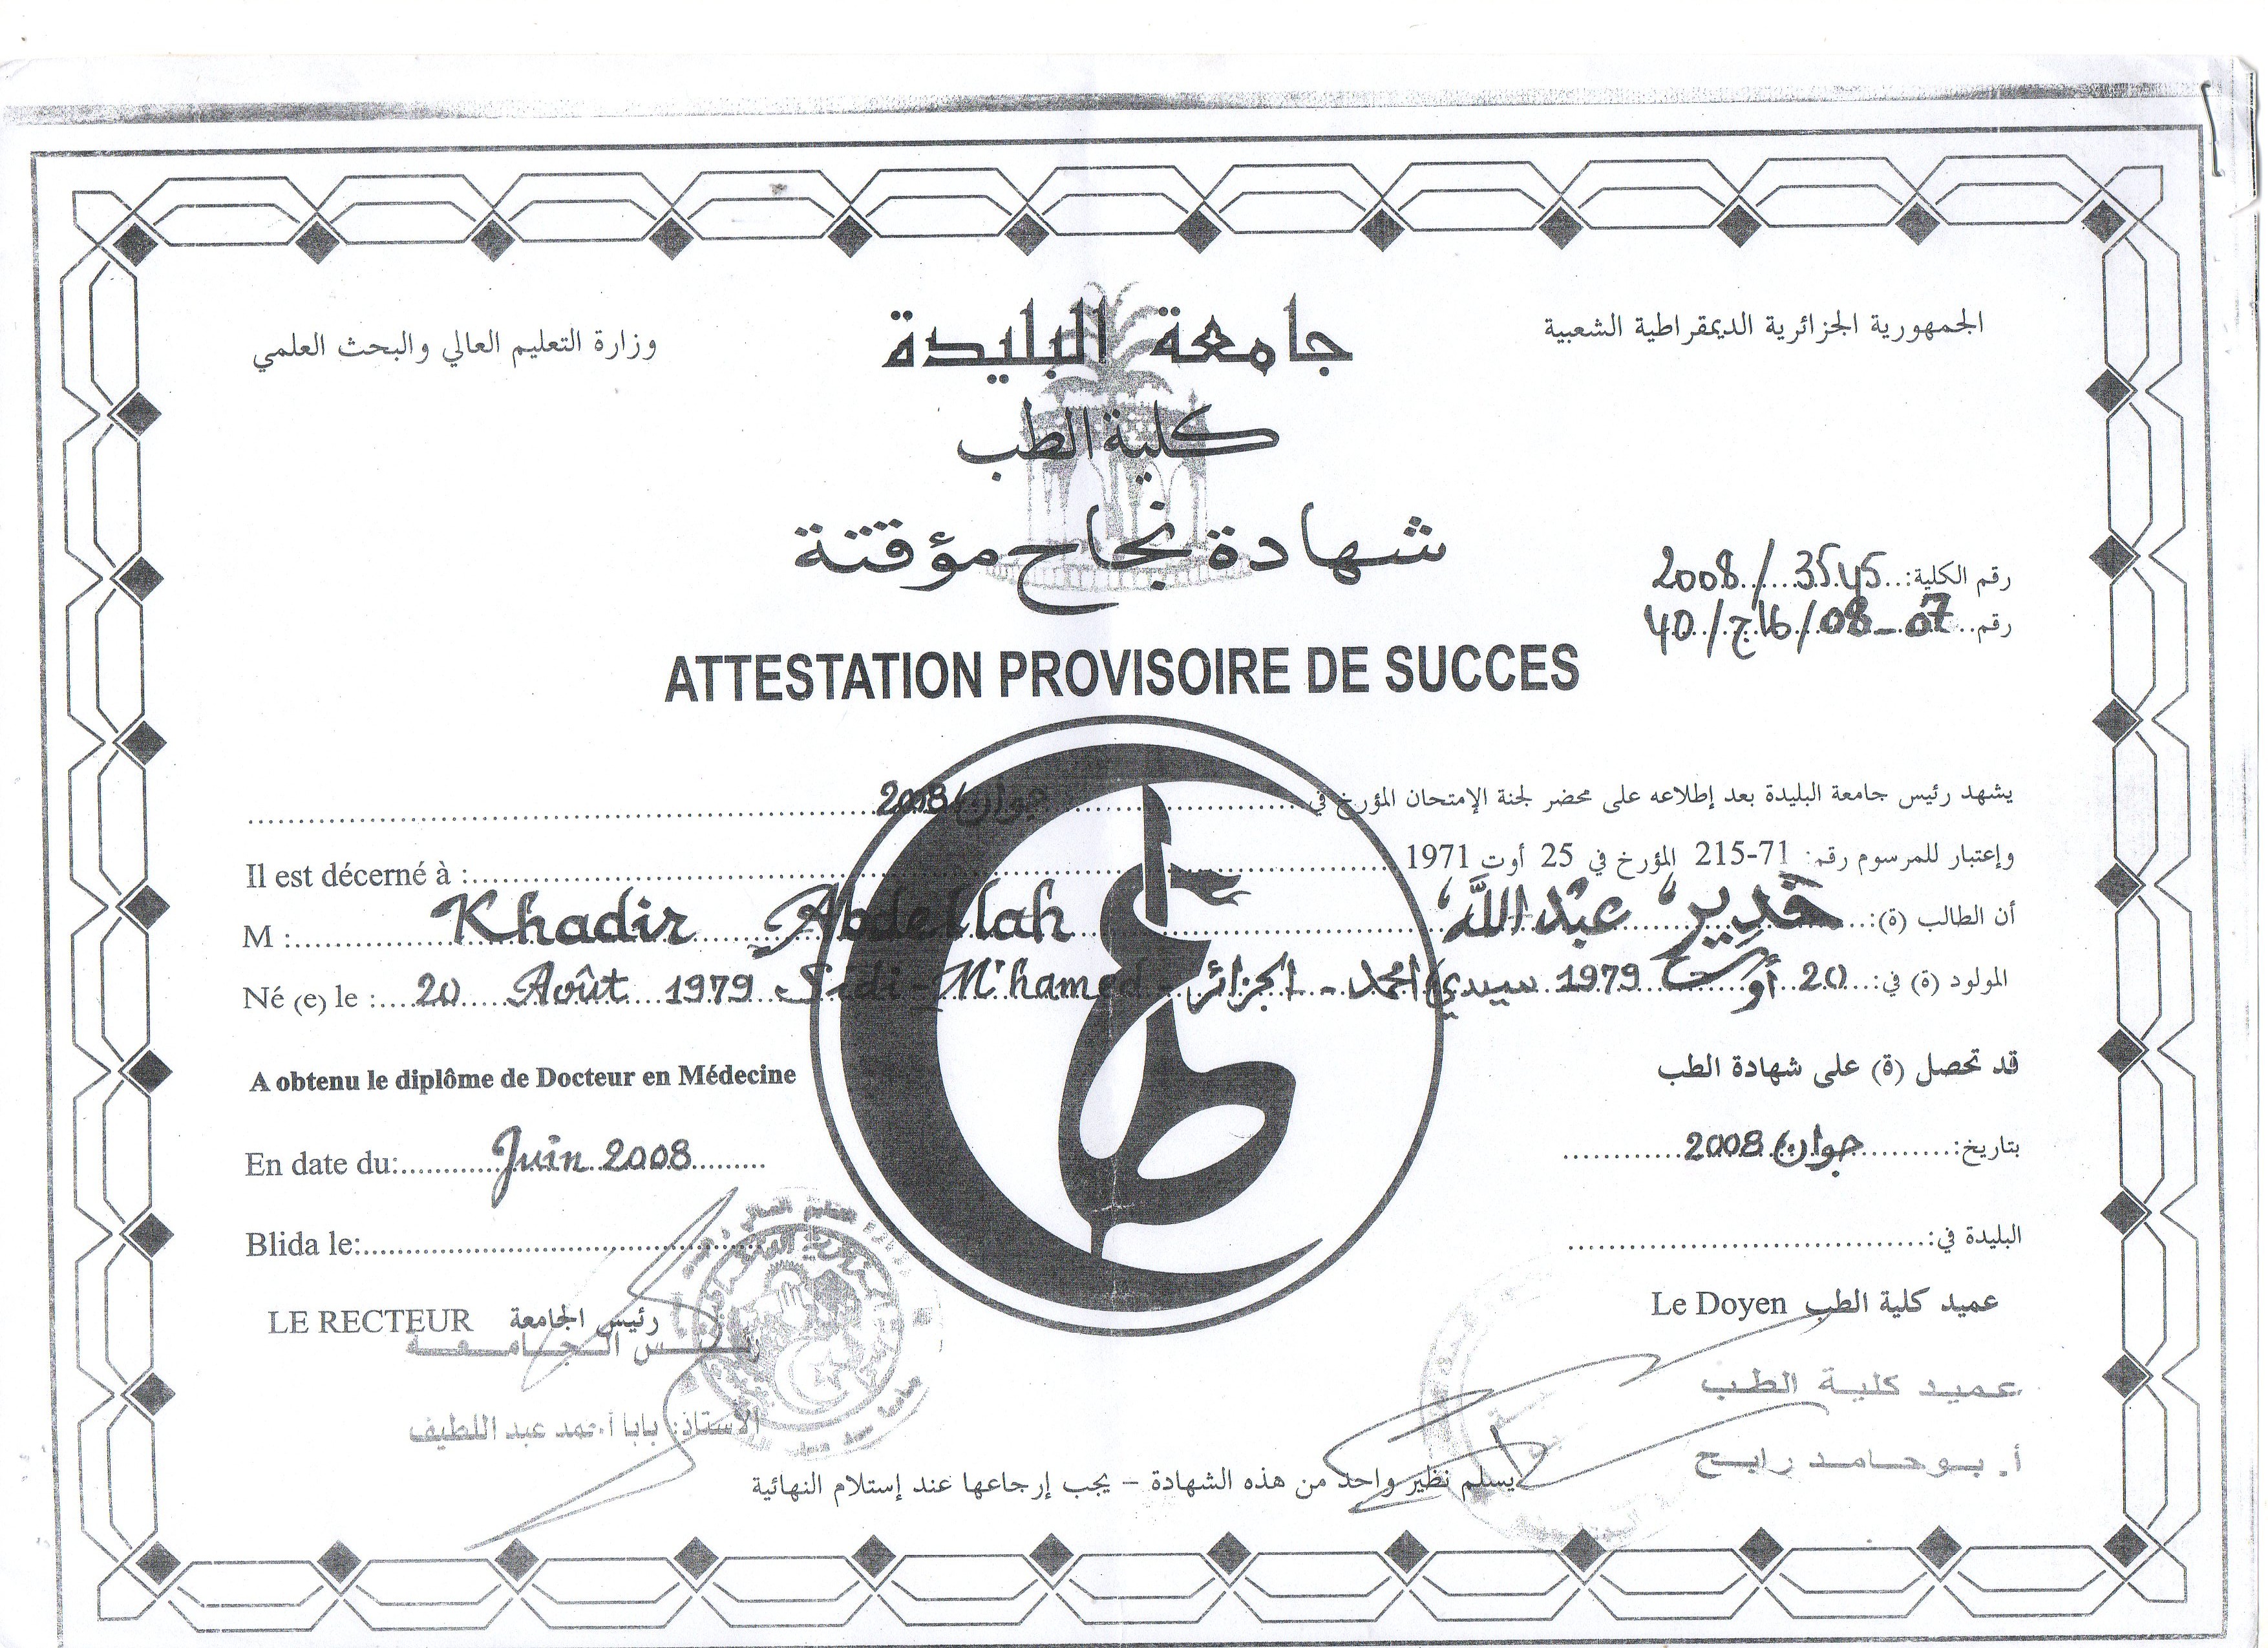 الجمهورية الجزائرية الديمقراطية الشعبية
وزارة التعليم العالي والبحث العلمي
جامعة البليدة
كلية الطب
شهادة نجاح مؤقتة
رقم الكلية: 3545 / 2008
رقم 07-08/ج16/40
ATTESTATION PROVISOIRE DE SUCCES
يشهد رئيس جامعة البليدة بعد إطلاعه على محضر لجنة الإمتحان المؤرخ في جوان 2008
وإعتبار للمرسوم رقم: 71-215 المؤرخ في 25 أوت 1971
Il est décerné à :
أن الطالب (ة): خدير عبد الله
M : Khadir Abdellah
المولود (ة) في: 20 أوت 1979 سيدي امحمد - الجزائر
Né (e) le : 20 Août 1979 Sidi-M'hamed -
قد تحصل (ة) على شهادة الطب
A obtenu le diplôme de Docteur en Médecine
بتاريخ: جوان 2008
En date du: Juin 2008
البليدة في:
Blida le:
عميد كلية الطب Le Doyen
LE RECTEUR رئيس الجامعة
رئيس الجامعة
عميد كلية الطب
الأستاذ: بابا أحمد عبد اللطيف
أ. بوحامد رابح
يسلم نظير واحد من هذه الشهادة – يجب إرجاعها عند إستلام النهائية